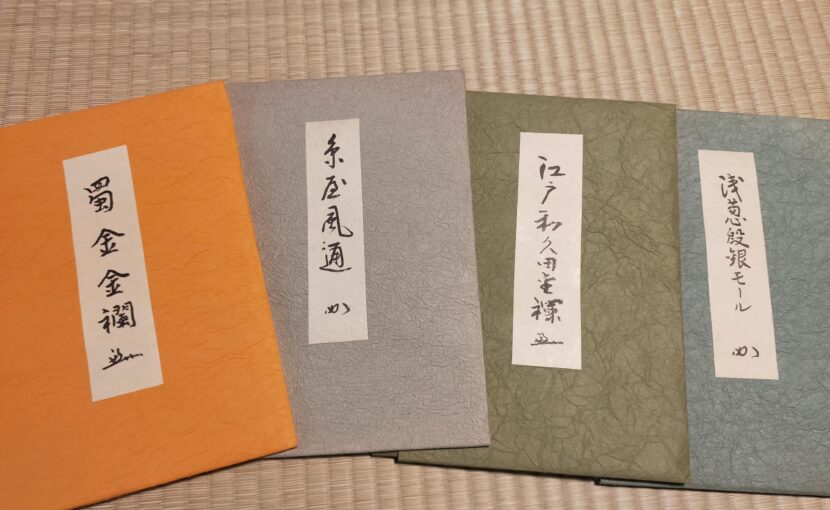 蜀金金襴
糸屋風通
江戸和久田金襴
浅葱殷銀モール